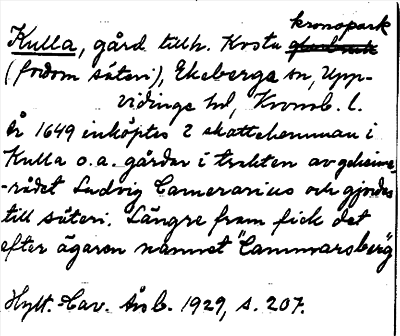 kronopark
Kulla, gård tillh. Kosta glasbruk
(fordom säteri), Ekeberga sn, Upp-
vidinge hd, Kronob. l.
År 1649 inköptes 2 skattehemman i
Kulla o.a. gårdar i trakten av geheime-
-rådet Ludvig Camerarius och gjordes
till säteri. Längre fram fick det
efter ägaren namnet "Cammarsberg"
Hylt.-Cav. Årsb. 1929, s. 207.